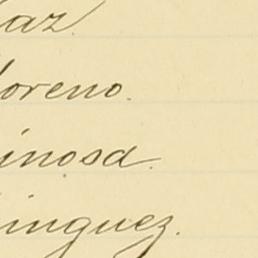 az.
oreno.
inosa.
inguez.